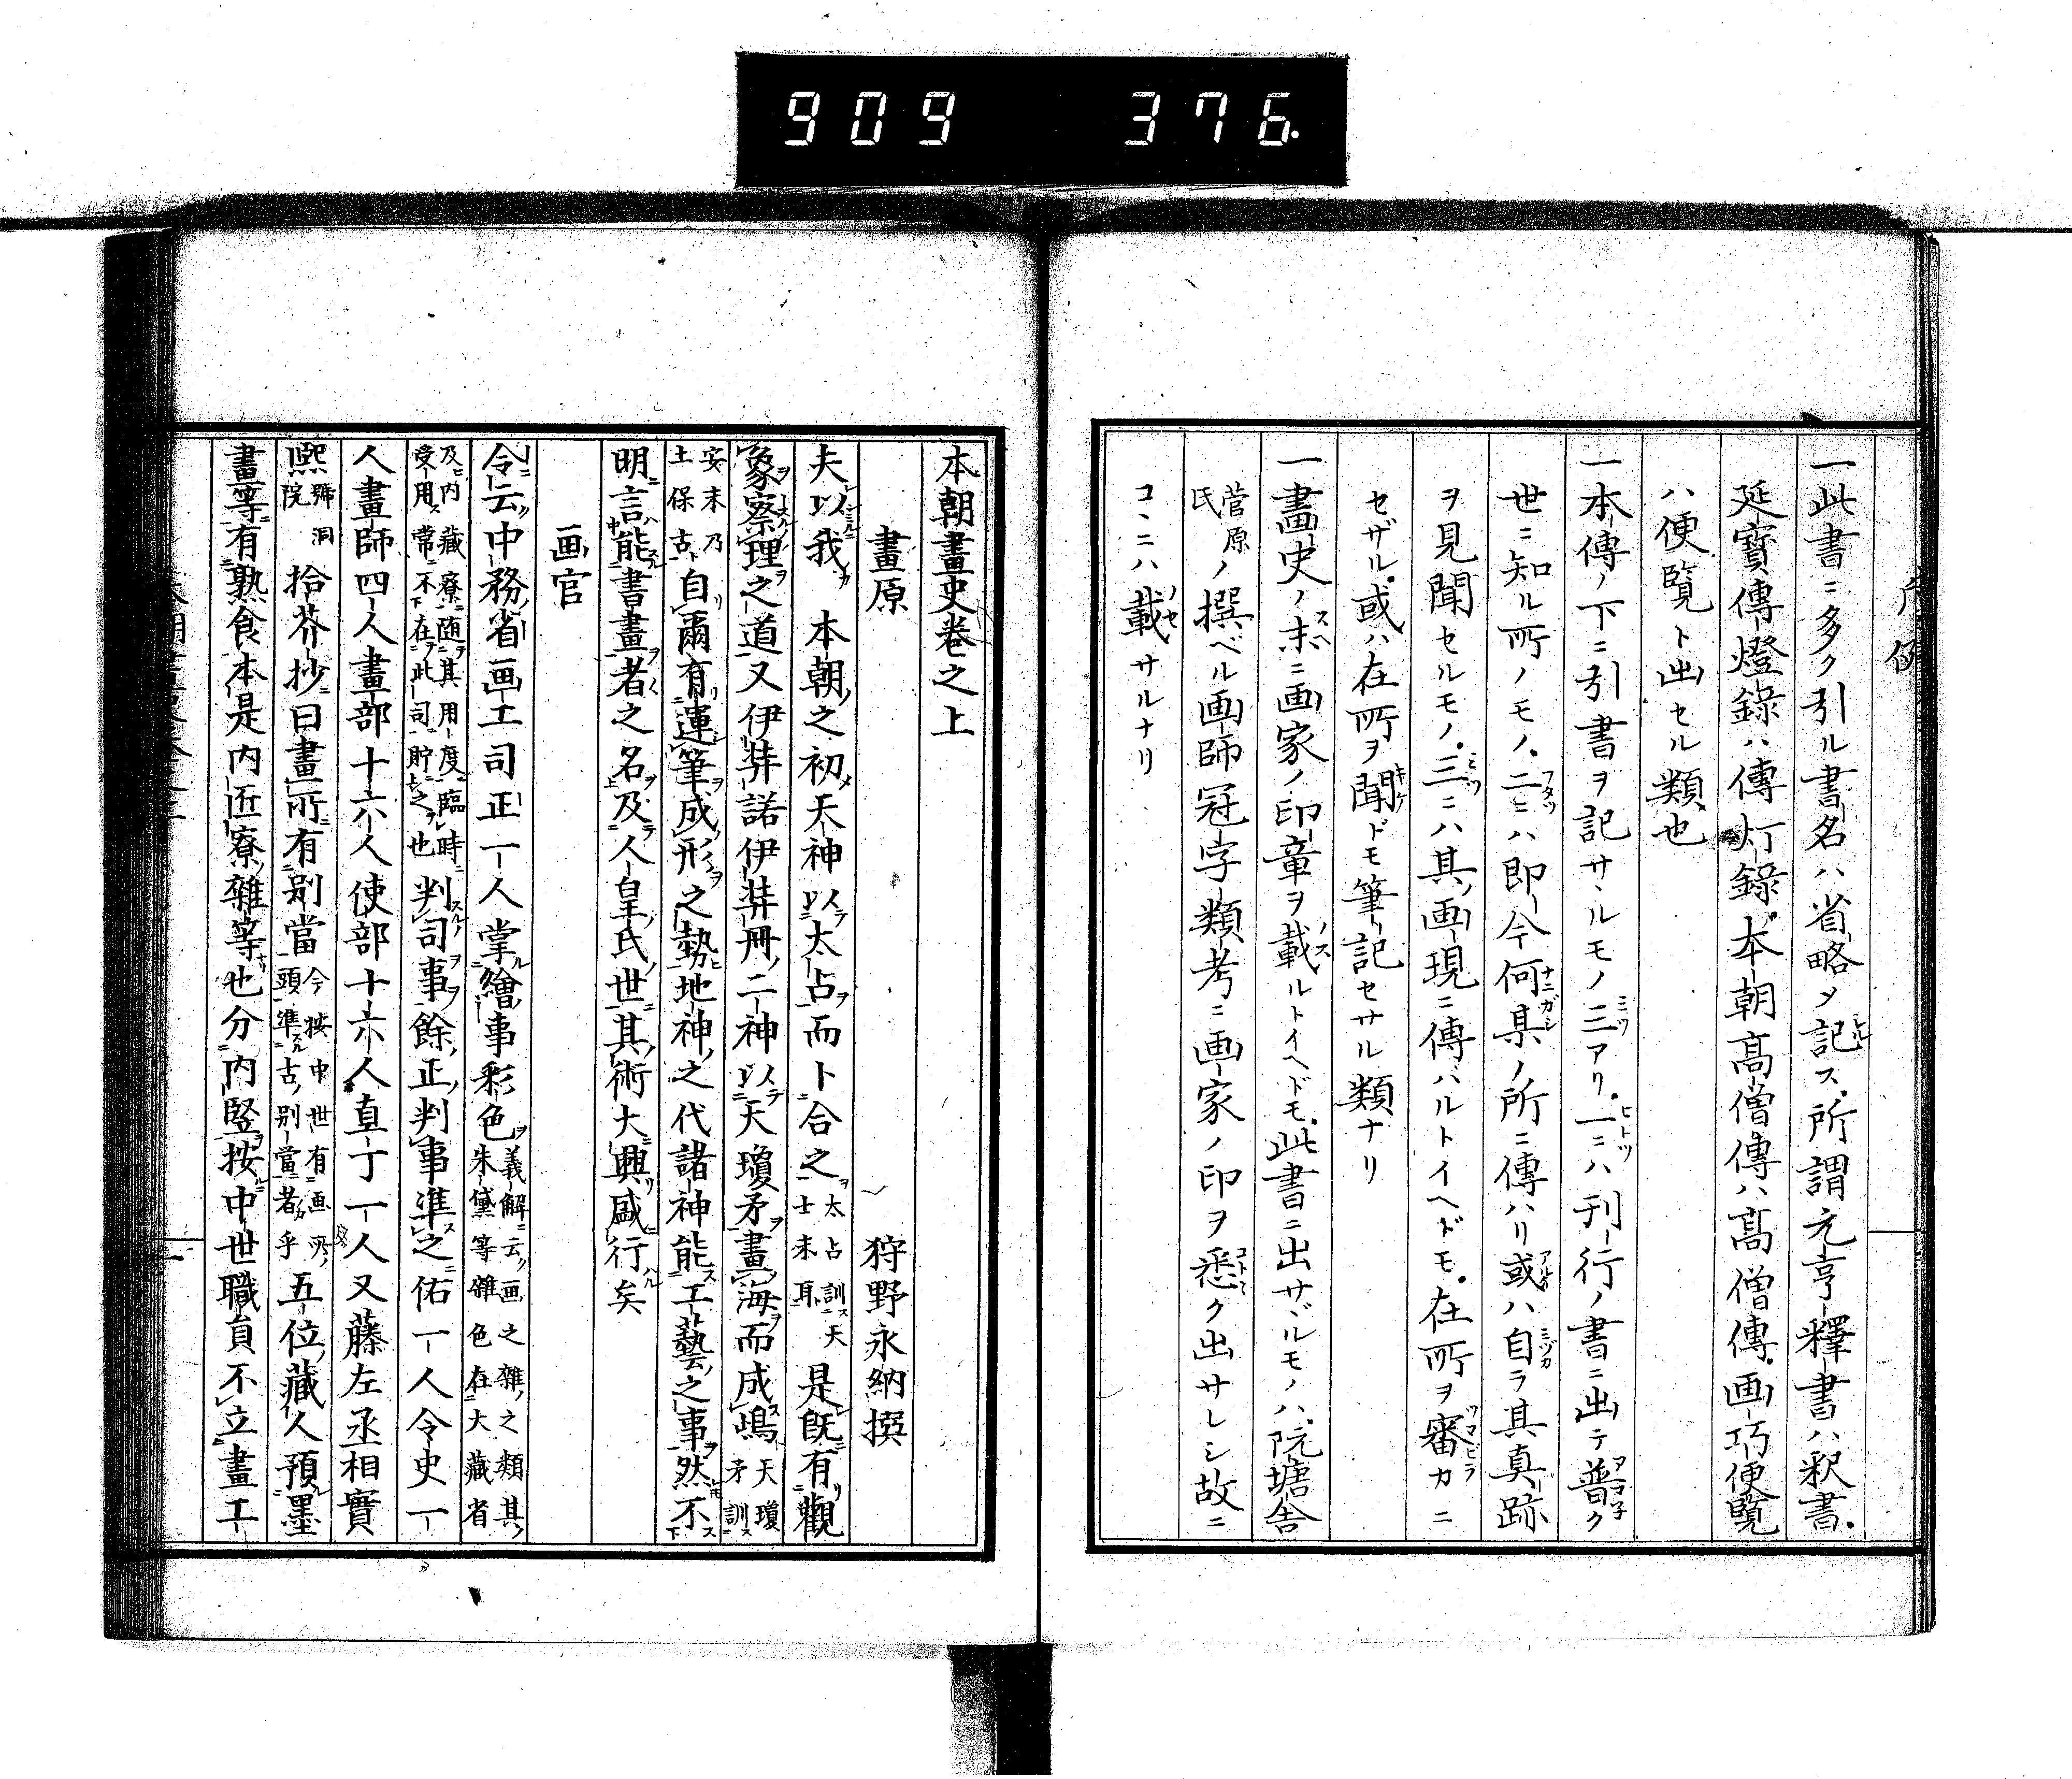 909 376.
凡例
一此書ニ多ク引ル書名ハ省略メ記ス所謂元亨釋書ハ釈書
延寶傳燈錄ハ傳灯錄本朝高僧傳ハ髙僧傳画巧便覽
ハ便覽ト出セル類也
一本傳ノ下ニ引書ヲ記サヽルモノ三アリ一ニハ刊行ノ書ニ出テ普ク
世ニ知ル所ノモノ二ニハ即今何某ノ所ニ傳ハリ或ハ自ラ其真跡
ヲ見聞セルモノ三ニハ其画現ニ傳ハルトイヘドモ在所ヲ審カニ
セザル或ハ在所ヲ聞ドモ筆記セサル類ナリ
一畫史ノ末ニ画家ノ印章ヲ載ルトイヘドモ此書ニ出サヾルモノハ阮塘舎
菅原氏ノ撰ベル画師冠字類考ニ画家ノ印ヲ悉ク出サレシ故ニ
コヽニハ載サルナリ
本朝畫史卷之上
畫原 狩野永納撰
夫以我 本朝之初天神以太占而卜合之太占訓天士末耳是既有觀
象察理之道又伊弉諾伊弉冊二神以天瓊矛畫海而成嶋天瓊矛訓
安末乃土保古自爾有運筆成形之勢地神之代諸神能工藝之事然不
明言能書畫者之名及人皇氏世其術大興盛行矣
画官
令云中務省画工司正一人掌繪事彩色義解云画之雜之類其朱黛等雜色在大藏省
及内藏寮随其用度臨時受用常不在此司貯之也判司事餘正判事準之佑一人令史一
人畫師四人畫部十六人使部十六人直丁一人又藤左丞相實
熙號洞院 拾芥抄曰畫所有別當今按中世有画所頭準古別當者乎五位藏人預墨
畫等有熟食本是内匠寮雜等也分内竪按中世職員不立畫工